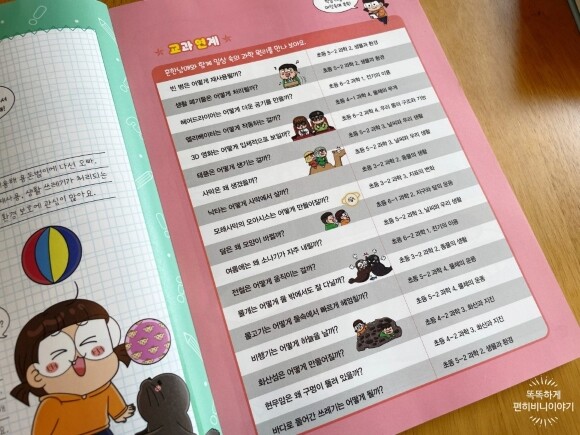 교과 연계
흔한남매와 함께 일상 속의 과학 원리를 만나 보아요.
빈 병은 어떻게 재사용될까? 초등 5-2 과학 2. 생물과 환경
생활 폐기물은 어떻게 처리될까? 초등 5-2 과학 2. 생물과 환경
헤어드라이어는 어떻게 더운 공기를 만들까? 초등 6-2 과학 1. 전기의 이용
엘리베이터는 어떻게 작동하는 걸까? 초등 4-1 과학 4. 물체의 무게
3D 영화는 어떻게 입체적으로 보일까? 초등 6-2 과학 4. 우리 몸의 구조와 기능
태풍은 어떻게 생기는 걸까? 초등 5-2 과학 3. 날씨와 우리 생활
사막은 왜 생겼을까? 초등 5-2 과학 3. 날씨와 우리 생활
낙타는 어떻게 사막에서 살까? 초등 3-2 과학 2. 동물의 생활
모래사막의 오아시스는 어떻게 만들어질까? 초등 3-2 과학 3. 지표의 변화
달은 왜 모양이 바뀔까? 초등 6-1 과학 2. 지구와 달의 운동
여름에는 왜 소나기가 자주 내릴까? 초등 5-2 과학 3. 날씨와 우리 생활
전철은 어떻게 움직이는 걸까? 초등 6-2 과학 1. 전기의 이용
물개는 어떻게 물 밖에서도 잘 다닐까? 초등 3-2 과학 2. 동물의 생활
물고기는 어떻게 물속에서 빠르게 헤엄칠까? 초등 5-2 과학 4. 물체의 운동
비행기는 어떻게 하늘을 날까? 초등 5-2 과학 4. 물체의 운동
화산섬은 어떻게 만들어질까? 초등 4-2 과학 3. 화산과 지진
현무암은 왜 구멍이 뚫려 있을까? 초등 4-2 과학 3. 화산과 지진
바다로 들어간 쓰레기는 어떻게 될까? 초등 5-2 과학 2. 생물과 환경
나선 오빠.
생활 쓰레기가 처리되는
보호에 관심이 많아요.
똑똑하게
편히비니이야기